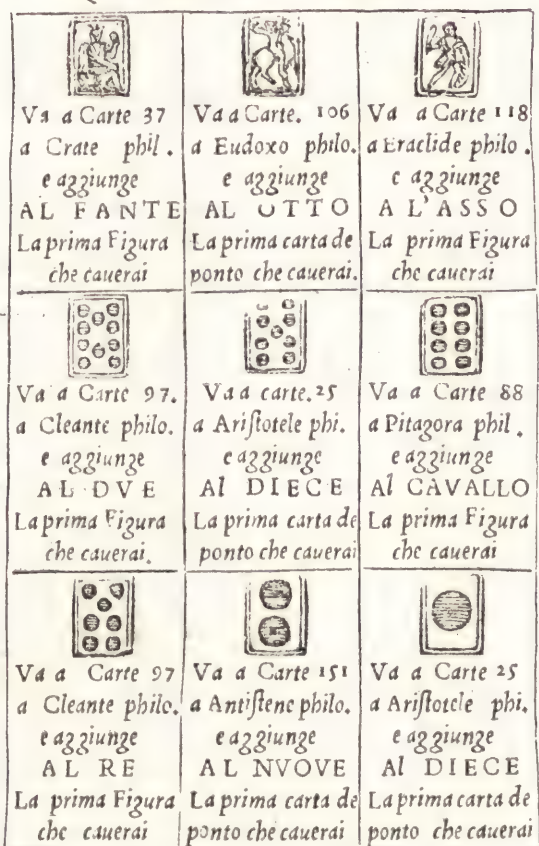 Va a Carte 37
a Crate phil.
e aggiunge
AL FANTE
La prima Figura
che cauerai
Va a Carte. 106
a Eudoxo philo.
e aggiunge
AL OTTO
La prima carta de
ponto che cauerai.
Va a Carte 118
a Eraclide philo.
e aggiunge
A L'ASSO
La prima Figura
che cauerai
Va a Carte 97.
a Cleante philo.
e aggiunge
AL DVE
La prima Figura
che cauerai.
Va a carte. 25
a Ariſtotele phi.
e aggiunge
Al DIECE
La prima carta de
ponto che cauerai
Va a Carte 88
a Pitagora phil.
e aggiunge
Al CAVALLO
La prima Figura
che cauerai
Va a Carte 97
a Cleante philo.
e aggiunge
AL RE
La prima Figura
che cauerai
Va a Carte 151
a Antiſtene philo.
e aggiunge
AL NVOVE
La prima carta de
ponto che cauerai
Va a Carte 25
a Ariſtotele phi.
e aggiunge
Al DIECE
La prima carta de
ponto che cauerai